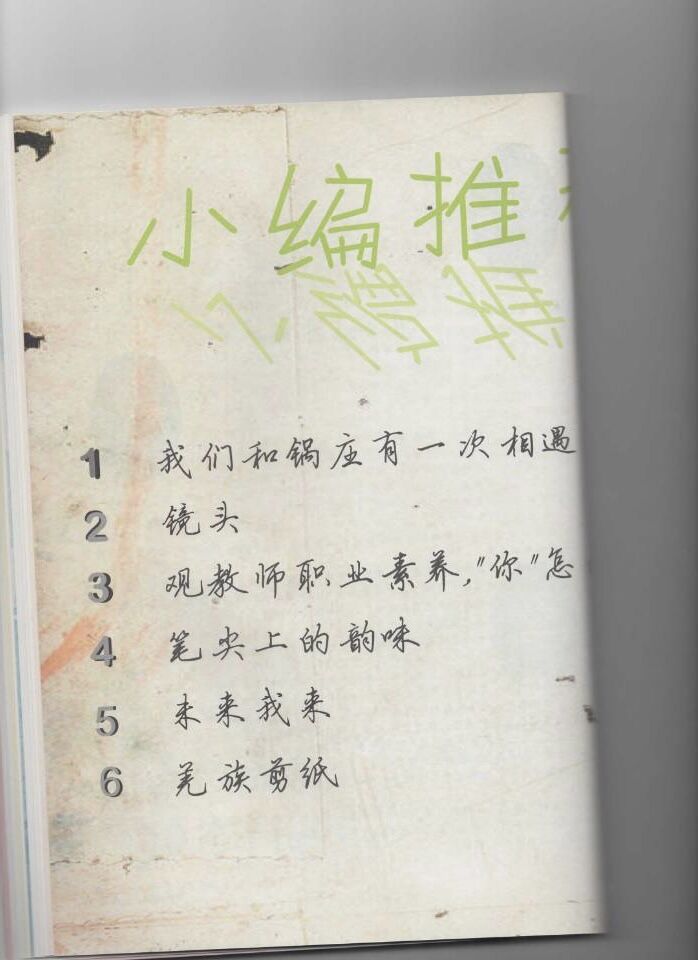 小编推
1 我们和锅庄有一次相遇
2 镜头
3 观教师职业素养，"你"怎
4 笔尖上的韵味
5 未来我来
6 羌族剪纸